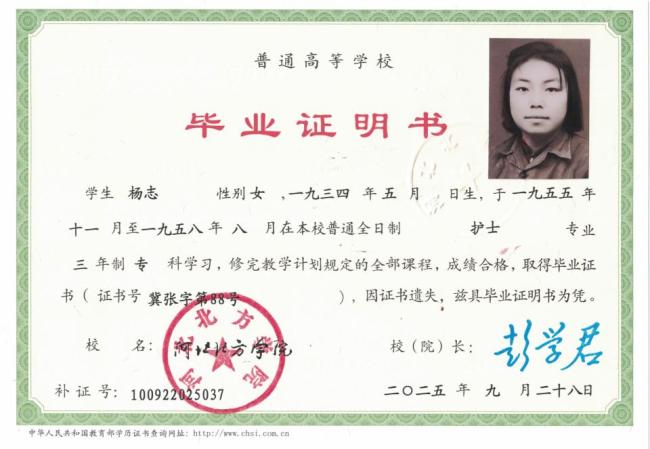 普通高等学校
毕业证明书
学生 杨志 性别 女 ，一九三四 年 五 月 日生，于 一九五五 年
十一 月至 一九五八 年 八 月在本校普通全日制 护士 专业
三 年制 专 科学习，修完教学计划规定的全部课程，成绩合格，取得毕业证
书（ 证书号 冀张字第88号 ），因证书遗失，兹具毕业证明书为凭。
校 名： 河北北方学院
河北北方学院
校（院）长： 彭学君
补 证 号： 100922025037
二〇二五 年 九 月 二十八日
中华人民共和国教育部学历证书查询网址：http://www.chsi.com.cn